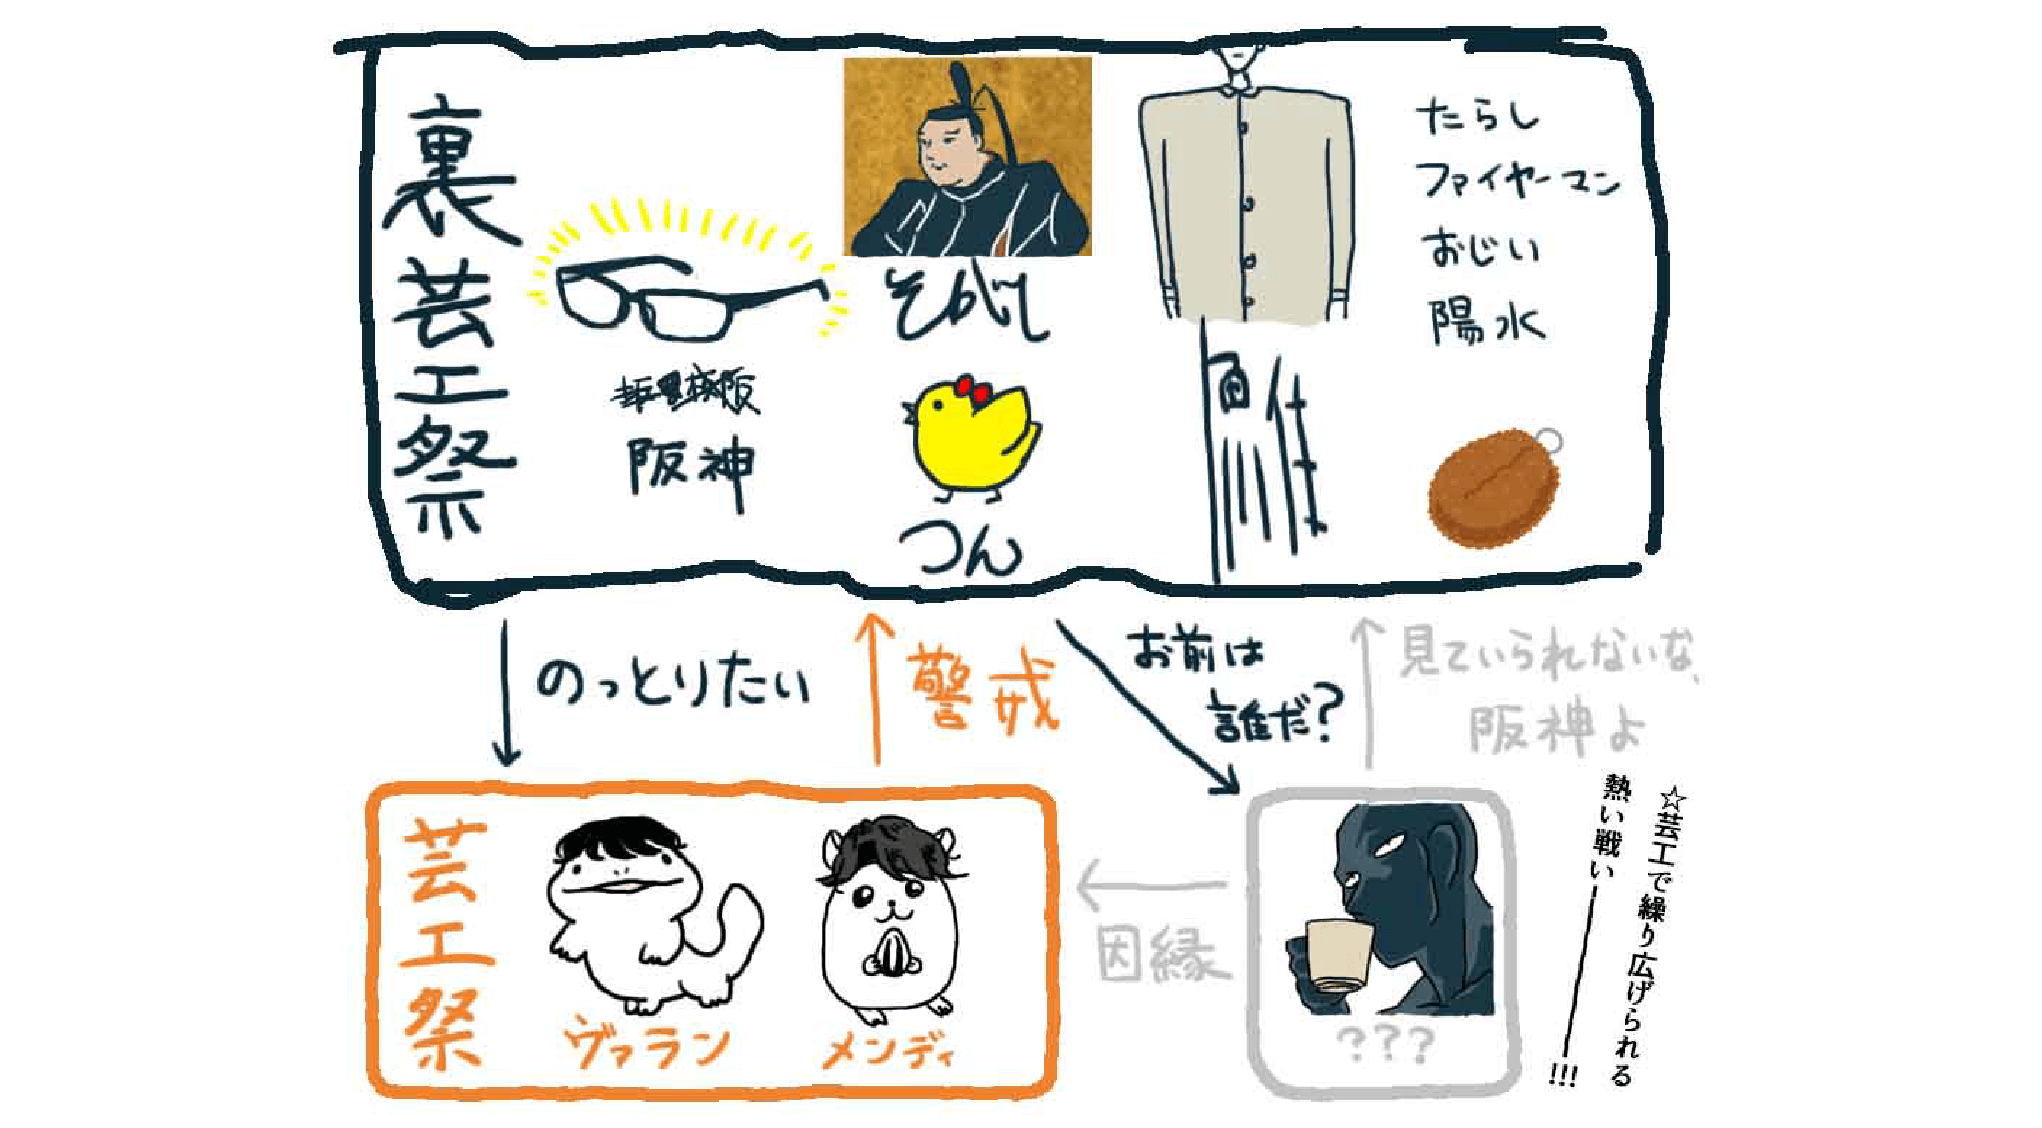 裏芸工祭
阪神
そがし
つん
たらし
ファイヤーマン
おじい
陽水
のっとりたい
警戒
お前は
誰だ?
見ていられないな、
阪神よ
芸工祭
ヴァラン
メンディ
因縁
???
☆芸工で繰り広げられる
熱い戦い―――!!!